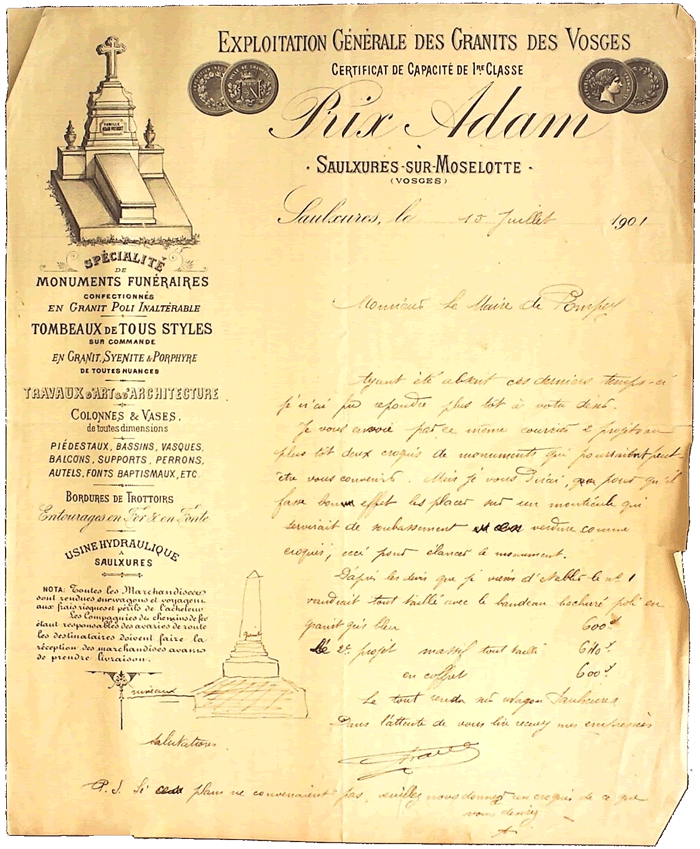 EXPLOITATION GÉNÉRALE DES GRANITS DES VOSGES
CERTIFICAT DE CAPACITÉ DE 1RE CLASSE
Rix Adam
SAULXURES-SUR-MOSELOTTE
(VOSGES)
Saulxures, le 15 Juillet 1901
FAMILLE
SPÉCIALITÉ
DE
MONUMENTS FUNÉRAIRES
CONFECTIONNÉS
EN GRANIT POLI INALTÉRABLE
TOMBEAUX DE TOUS STYLES
SUR COMMANDE
EN GRANIT, SYENITE & PORPHYRE
DE TOUTES NUANCES
TRAVAUX D'ART & D'ARCHITECTURE
COLONNES & VASES,
de toutes dimensions
PIÉDESTAUX, BASSINS, VASQUES,
BALCONS, SUPPORTS, PERRONS,
AUTELS, FONTS BAPTISMAUX, ETC.
BORDURES DE TROTTOIRS
Entourages en Fer & en Fonte
USINE HYDRAULIQUE
A
SAULXURES
NOTA: Toutes les Marchandises
sont rendues sur wagons et voyagent
aux frais risques et périls de l'acheteur
Les Compagnies du chemins de fer
étant responsables des avaries de route
les destinataires doivent faire la
réception des marchandises avant
de prendre livraison.
Monsieur Le Maire de Pompey
Ayant été absent ces derniers temps-ci
je n'ai pu repondre plus tôt à votre
Je vous envoie par ce même courrier 2 projets ou
plus tôt deux croquis de monuments qui pourraient peut
être vous convenir. Mais je vous dirai que pour qu'il
fasse bon effet les placer sur un monticule qui
servirait de soubassement en verdure comme
croquis, ceci pour élancer le monument.
D'après les devis que je viens d'établir le no 1
vaudrait tout taillé avec le bandeau poli en
granit gris bleu 600f
Le 2e projet massif tout taillé 640f
en coffret 600f
Le tout rendu sur wagon Saulxures
Dans l'attente de vous lire recevez mes empressées
salutations
P.S. Si plans ne convenaient pas, veuillez nous donner un croquis de ce que
vous